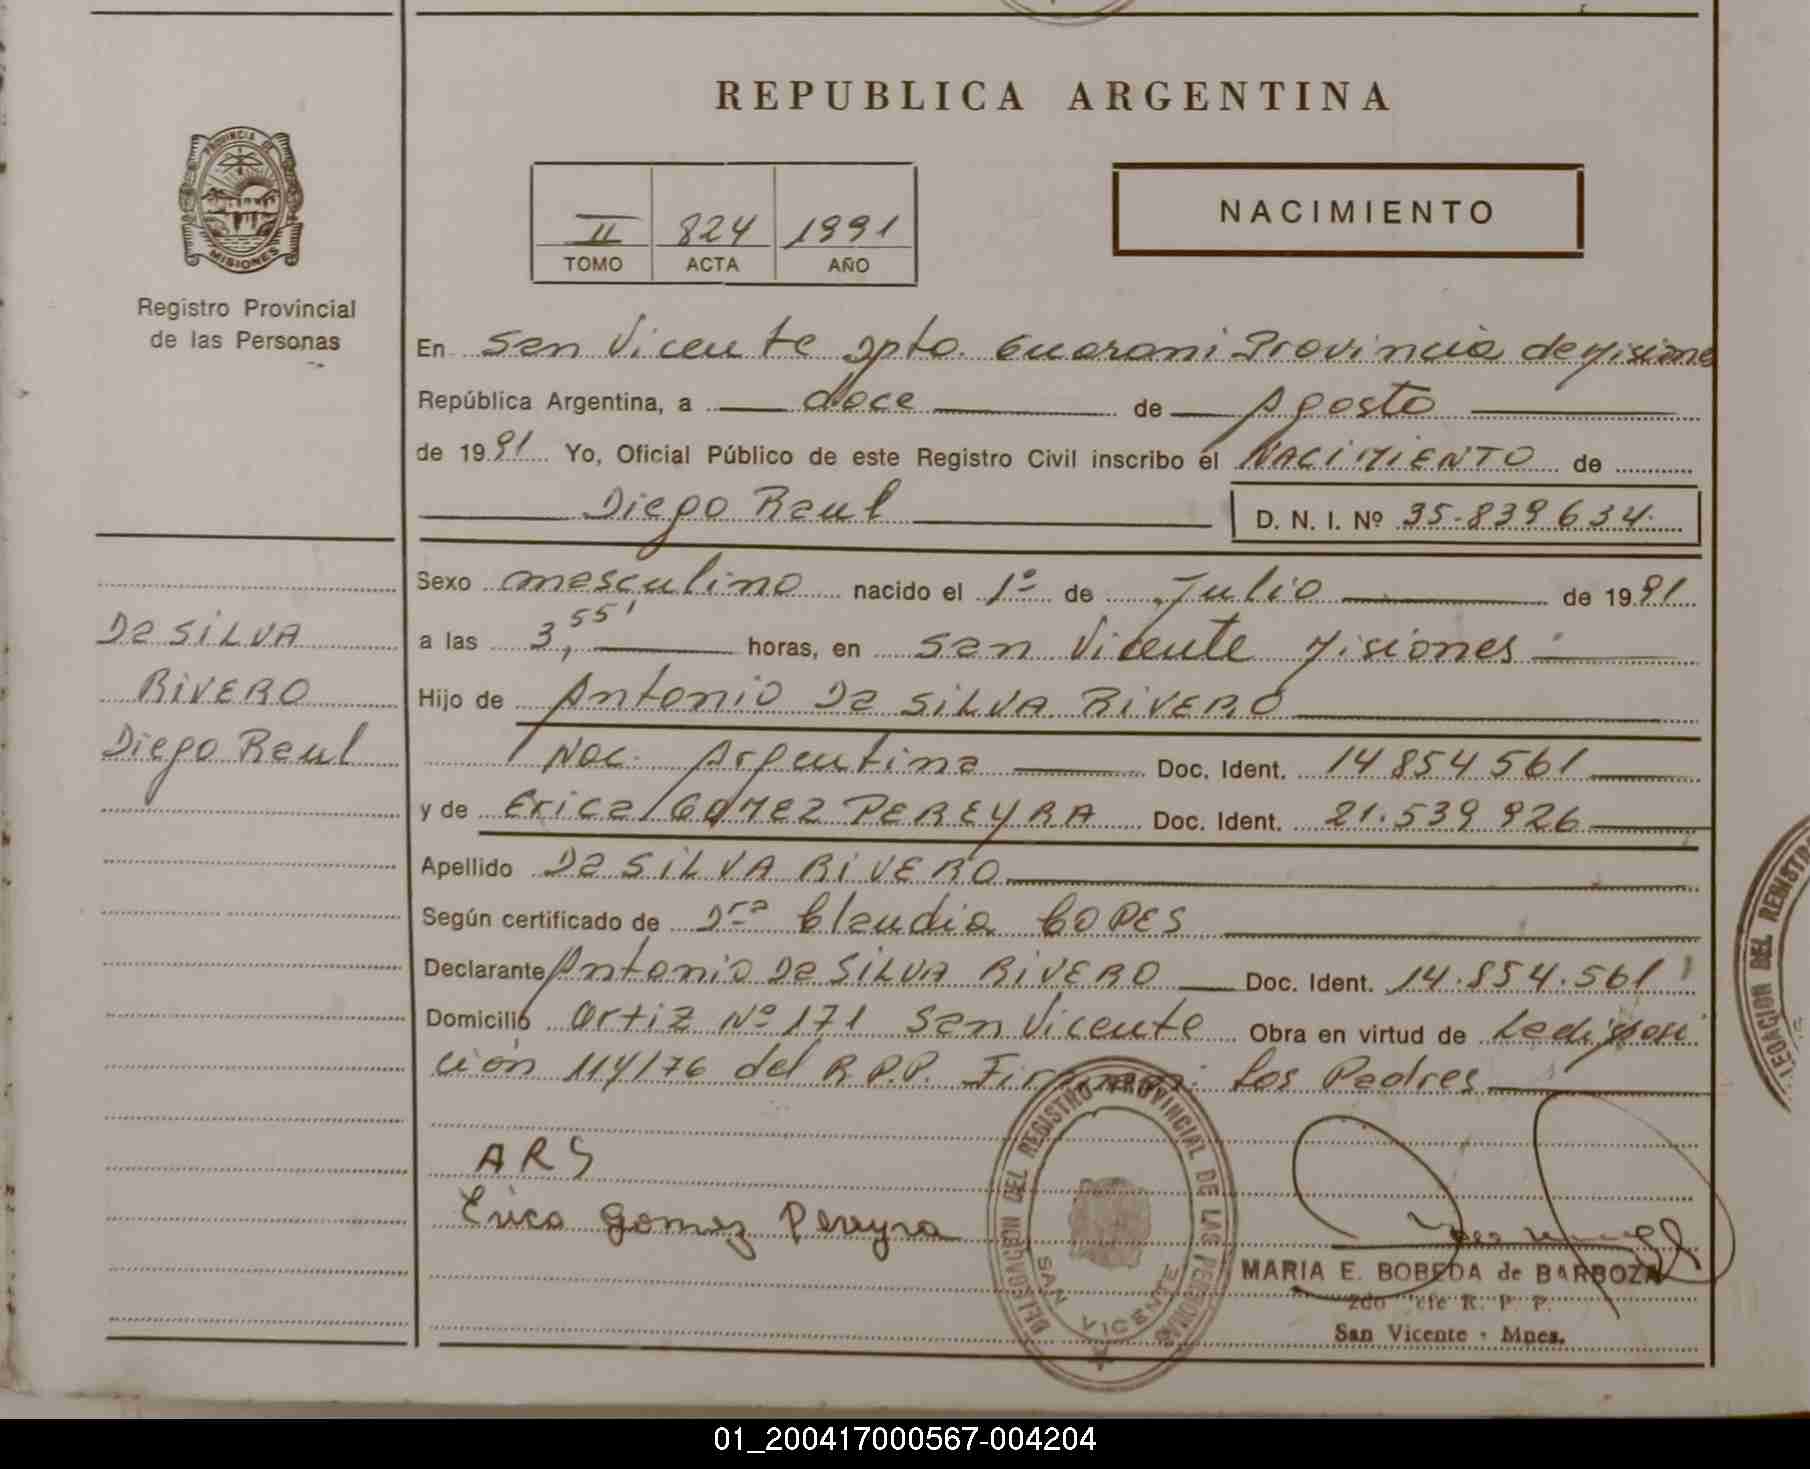 REPUBLICA ARGENTINA
PROVINCIA DE
MISIONES
Registro Provincial
de las Personas
NACIMIENTO
II 824 1991
TOMO ACTA AÑO
En San Vicente Dpto. Guarani Provincia de Misiones
República Argentina, a doce de Agosto
de 1991 Yo, Oficial Público de este Registro Civil inscribo el NACIMIENTO de
Diego Raul D. N. I. Nº 35.839634
Sexo masculino nacido el 1º de Julio de 1991
a las 3,55' horas, en San Vicente Misiones
Hijo de Antonio Da SILVA RIVERO
Nac. Argentina Doc. Ident. 14854561
y de Erica GOMEZ PEREYRA Doc. Ident. 21.539926
Apellido Da SILVA RIVERO
Según certificado de Dra Claudia COPES
Declarante Antonio Da SILVA RIVERO Doc. Ident. 14.854.561
Domicilio Ortiz Nº 171 San Vicente Obra en virtud de La disposi
ción 114/76 del R.P.P. Firman: Los Padres
Da SILVA
RIVERO
Diego Raul
ARS
Erica Gomez Pereyra
DELEGACION DEL REGISTRO PROVINCIAL DE LAS PERSONAS
SAN VICENTE
MARIA E. BOBEDA de BARBOZA
2do R. P. P.
San Vicente - Mnes.
DELEGACION DEL REGISTRO
01_200417000567-004204